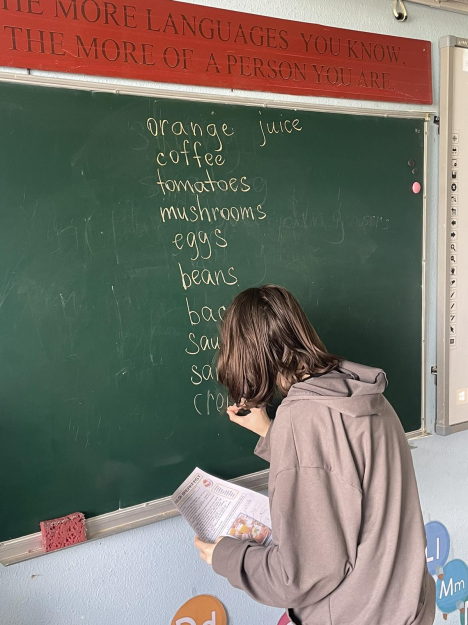 THE MORE LANGUAGES YOU KNOW,
THE MORE OF A PERSON YOU ARE
orange juice
coffee
tomatoes
mushrooms
eggs
beans
Ll
Mm
Dd